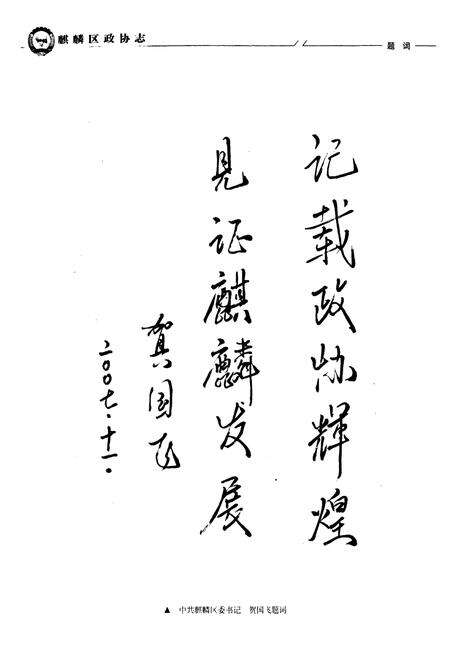 麒麟区政协志
题词
记载政协辉煌
见证麒麟发展
贺国飞
二00七·十一·
▲ 中共麒麟区委书记 贺国飞题词